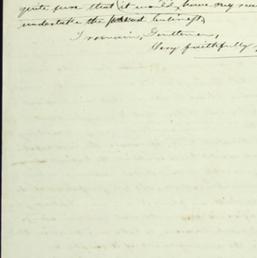 quite sure that it would, have my
undertake the
I remain, Gentlemen,
Very faithfully,